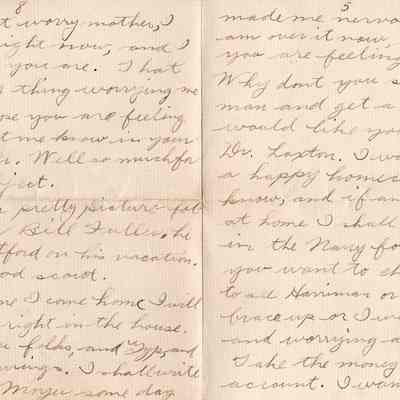 8
t worry mother, I
ight now, and I
you are. I hat
s thing worrying me
ose you are feeling
t me know in your
r. Well so much fo
ject.
pretty picture
Bill Fuller, he
tford on his vacation.
od scout.
me I come home I will
right in the house.
folks, and Gyp, and
I shall write
some day
5
made me nervo
am over it now,
you are feeling
Why dont you s
man and get a
would like you
Dr. Loxton. I wa
a happy homec
know, and if an
at home I shall
in the Navy fo
you want to ch
to see Harriman or
brace up or I wi
and worrying a
Take the money
account. I wan